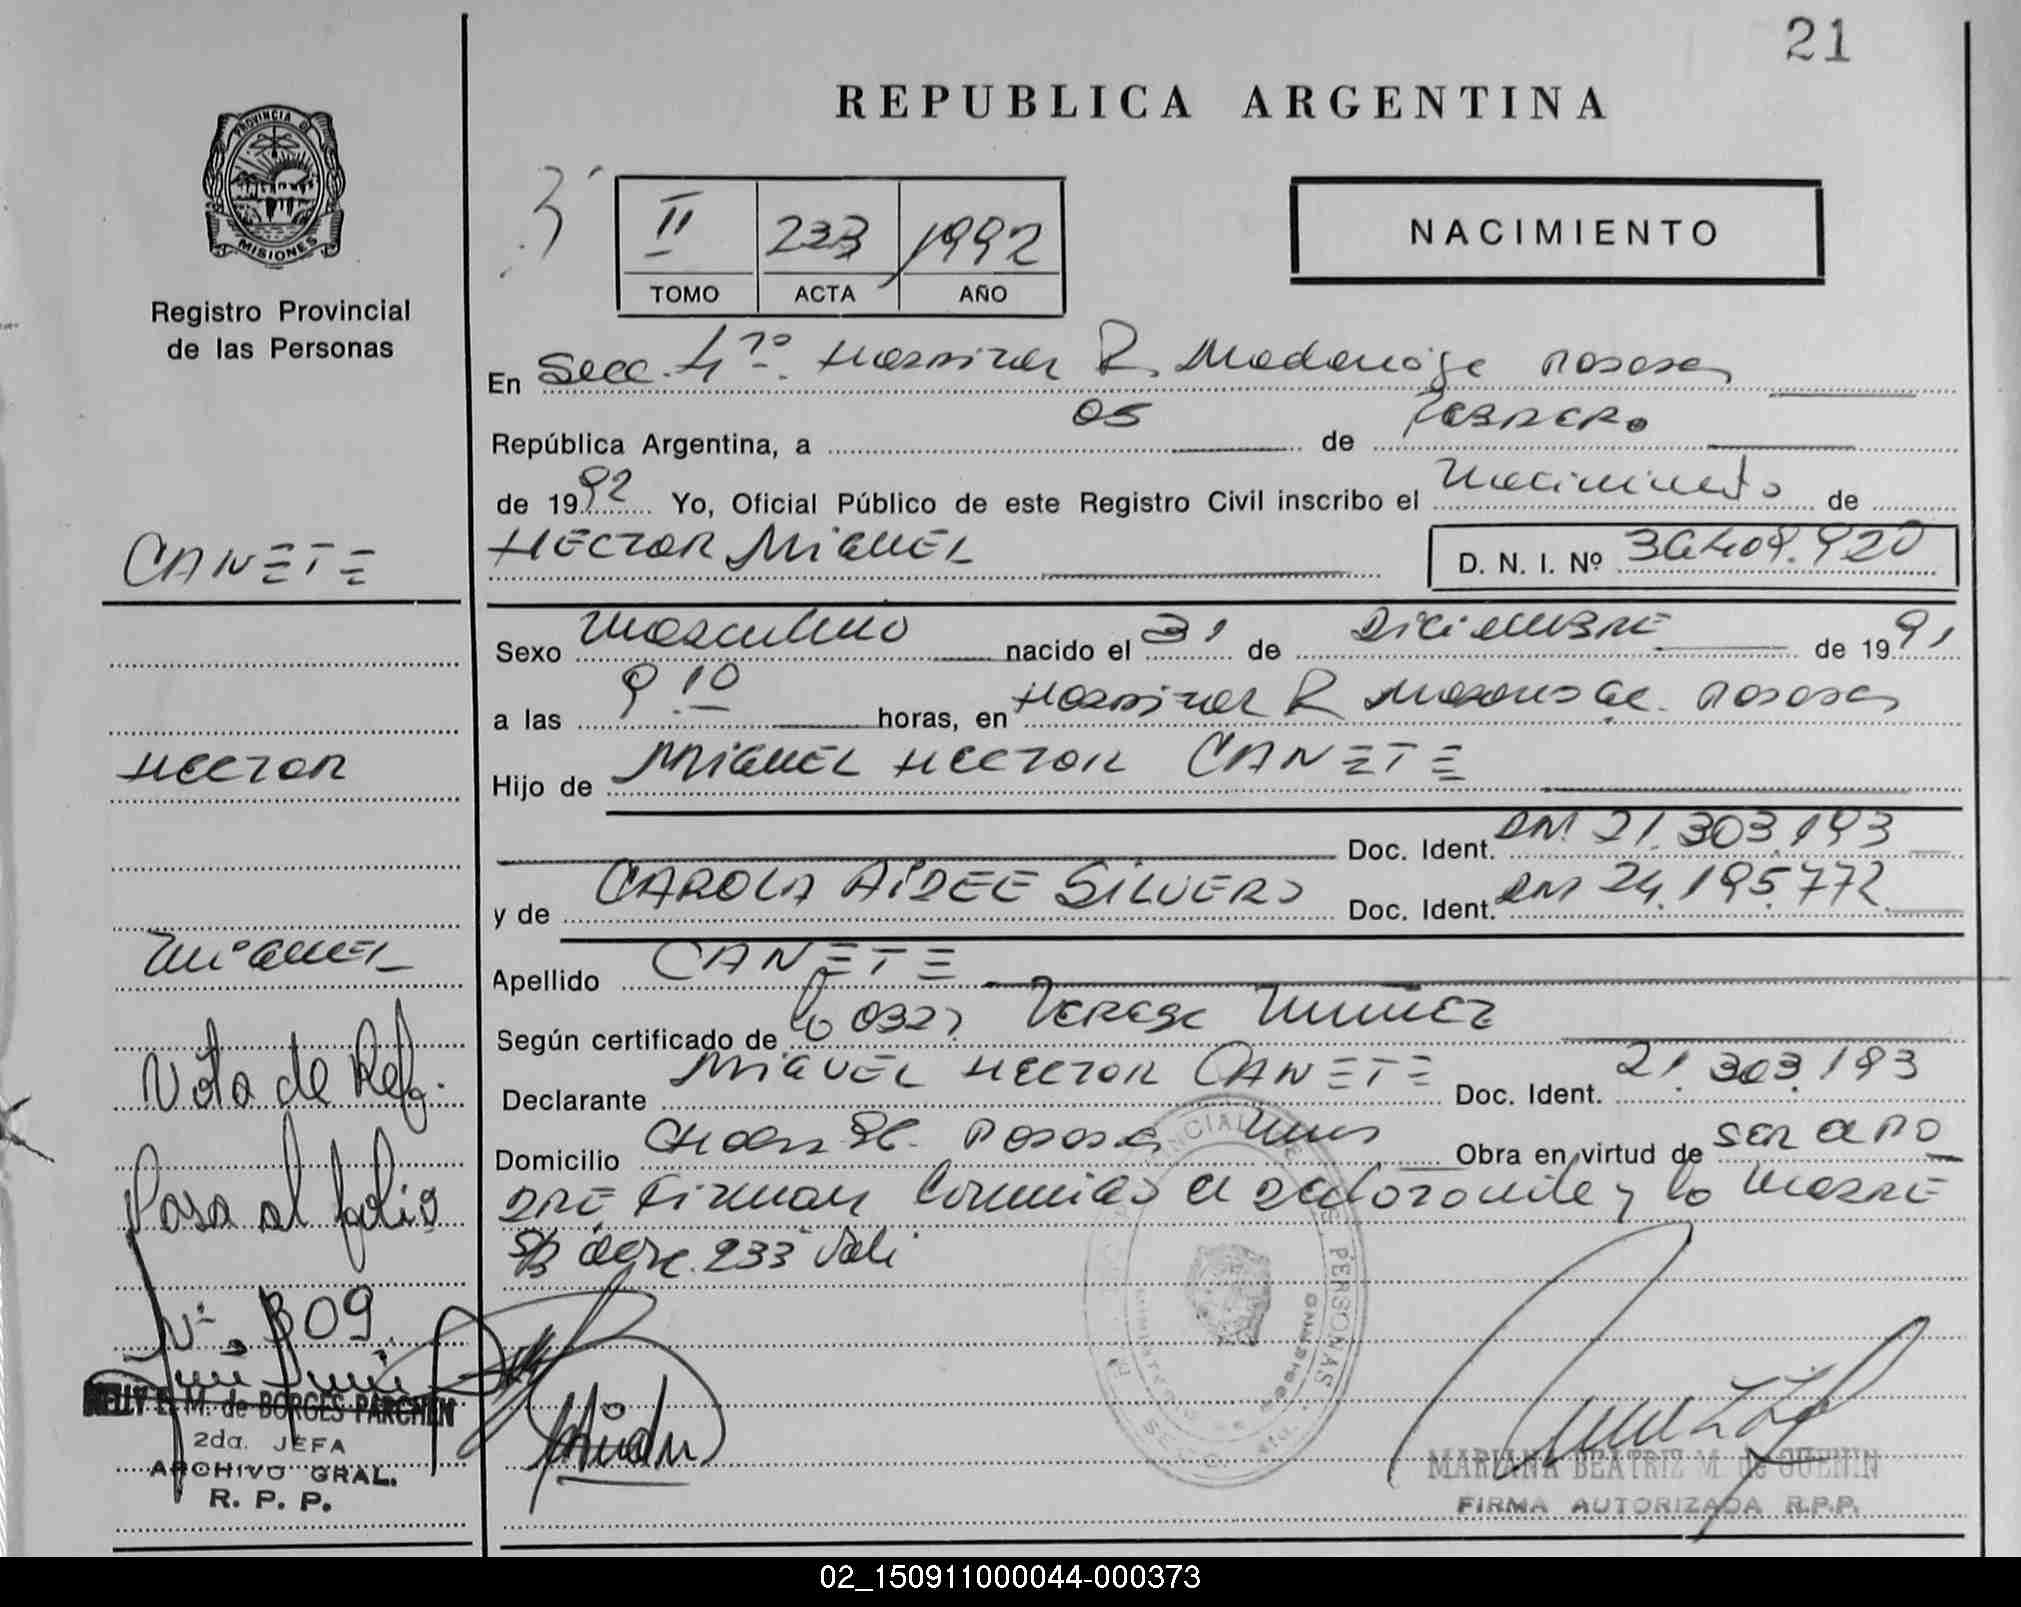 21
REPUBLICA ARGENTINA
PROVINCIA DE
MISIONES
Registro Provincial
de las Personas
II 233 1992
TOMO ACTA AÑO
NACIMIENTO
En Secc. 4ta. Hospital R. Madariaga Posadas
República Argentina, a 05 de Febrero
de 1992 Yo, Oficial Público de este Registro Civil inscribo el Nacimiento de
CANETE
HECTOR MIGUEL D. N. I. Nº 36.409.920
Sexo Masculino nacido el 31 de Diciembre de 1991
a las 9.10 horas, en Hospital R Madariaga. Posadas
HECTOR
Hijo de MIGUEL HECTOR CANETE
Doc. Ident. DNI 21.303.193
y de CAROLA AIDEE SILVERO Doc. Ident. DNI 24.195.772
MIGUEL
Apellido CANETE
Según certificado de la Teresa Nuñez
Nota de Ref.
Declarante MIGUEL HECTOR CANETE Doc. Ident. 21.303.193
Domicilio Posadas Mnes Obra en virtud de ser el pa
Pasa al folio
dre Firman Conmigo el declarante y la madre
S/B acta 233 Vale
Nº 309
NELLY E. M. de BORGES PARCHEN
2da. JEFA
ARCHIVO GRAL.
R. P. P.
MARIANA BEATRIZ M. de GUENIN
FIRMA AUTORIZADA R.P.P.
02_150911000044-000373